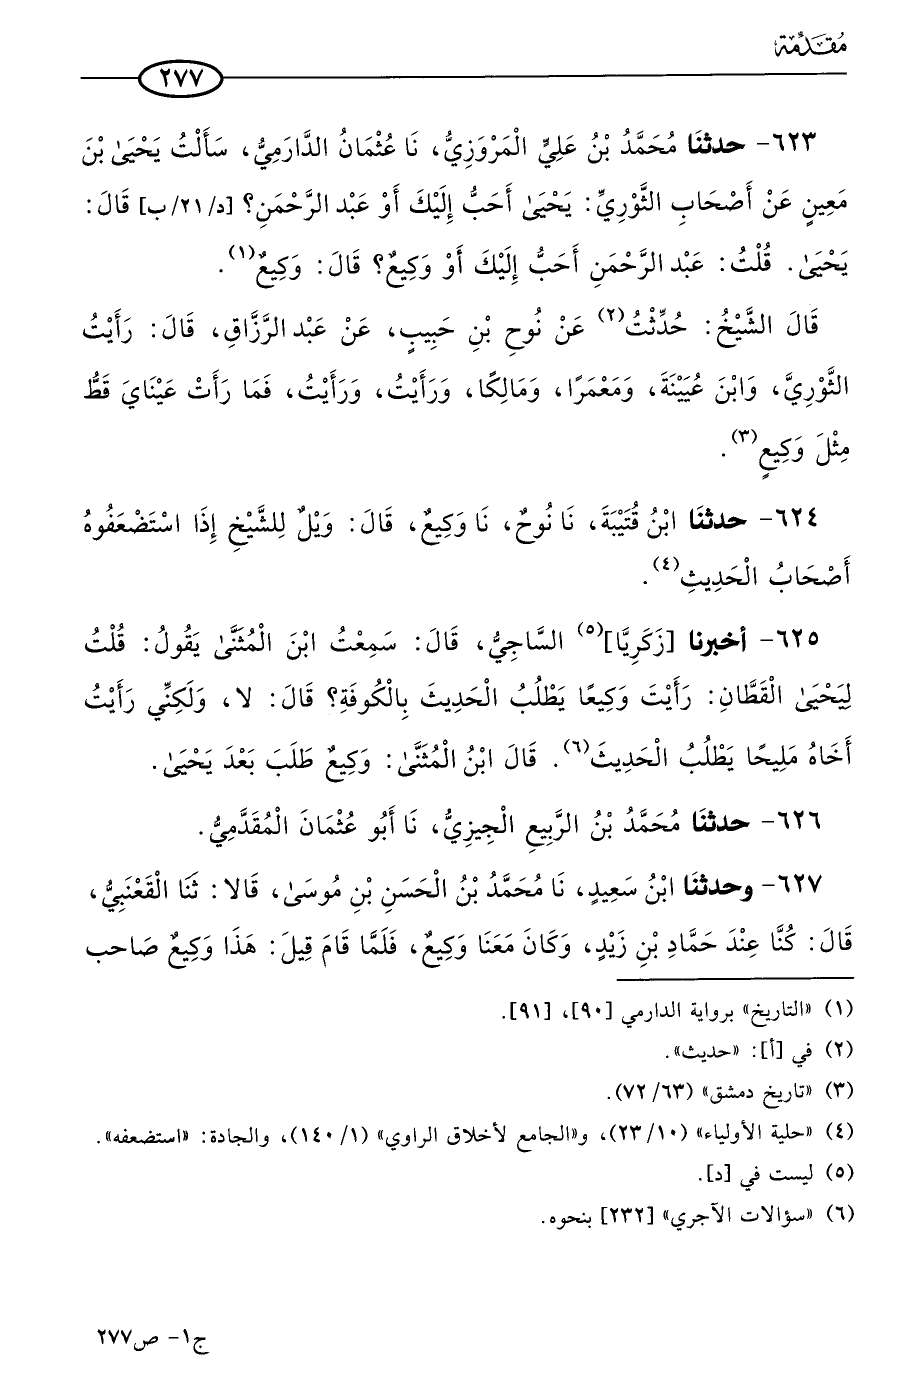 مُقَدِّمَة
٢٧٧
٦٢٣- حدثنَا مُحَمَّدُ بْنُ عَلِيٍّ الْمَرْوَزِيُّ، نَا عُثْمَانُ الدَّارَمِيُّ، سَأَلْتُ يَحْيَىٰ بْنَ
مَعِينٍ عَنْ أَصْحَابِ الثَّوْرِيِّ: يَحْيَىٰ أَحَبُّ إِلَيْكَ أَوْ عَبْد الرَّحْمَنِ؟ [د/٢١/ب] قَالَ:
يَحْيَىٰ. قُلْتُ: عَبْد الرَّحْمَنِ أَحَبُّ إِلَيْكَ أَوْ وَكِيعٌ؟ قَالَ: وَكِيعٌ(١).
قَالَ الشَّيْخُ: حُدِّثْتُ(٢) عَنْ نُوحِ بْنِ حَبِيبٍ، عَنْ عَبْد الرَّزَّاقِ، قَالَ: رَأَيْتُ
الثَّوْرِيَّ، وَابْنَ عُيَيْنَةَ، وَمَعْمَرًا، وَمَالِكًا، وَرَأَيْتُ، وَرَأَيْتُ، فَمَا رَأَتْ عَيْنَايَ قَطُّ
مِثْلَ وَكِيعٍ(٣).
٦٢٤- حدثنَا ابْنُ قُتَيْبَةَ، نَا نُوحٌ، نَا وَكِيعٌ، قَالَ: وَيْلٌ لِلشَّيْخِ إِذَا اسْتَضْعَفُوهُ
أَصْحَابُ الْحَدِيثِ(٤).
٦٢٥- أخبرنا [زَكَرِيَّا](٥) السَّاجِيُّ، قَالَ: سَمِعْتُ ابْنَ الْمُثَنَّىٰ يَقُولُ: قُلْتُ
لِيَحْيَىٰ الْقَطَّانِ: رَأَيْتَ وَكِيعًا يَطْلُبُ الْحَدِيثَ بِالْكُوفَةِ؟ قَالَ: لا، وَلَكِنِّي رَأَيْتُ
أَخَاهُ مَلِيحًا يَطْلُبُ الْحَدِيثَ(٦). قَالَ ابْنُ الْمُثَنَّىٰ: وَكِيعٌ طَلَبَ بَعْدَ يَحْيَىٰ.
٦٢٦- حدثنَا مُحَمَّدُ بْنُ الرَّبِيعِ الْجِيزِيُّ، نَا أَبُو عُثْمَانَ الْمُقَدَّمِيُّ.
٦٢٧- وحدثنَا ابْنُ سَعِيدٍ، نَا مُحَمَّدُ بْنُ الْحَسَنِ بْنِ مُوسَىٰ، قَالا: ثَنَا الْقَعْنَبِيُّ،
قَالَ: كُنَّا عِنْدَ حَمَّادِ بْنِ زَيْدٍ، وَكَانَ مَعَنَا وَكِيعٌ، فَلَمَّا قَامَ قِيلَ: هَذَا وَكِيعٌ صَاحب
(١) «التاريخ» برواية الدارمي [٩٠]، [٩١].
(٢) في [أ]: «حديث».
(٣) «تاريخ دمشق» (٧٢/٦٣).
(٤) «حلية الأولياء» (٢٣/١٠)، و«الجامع لأخلاق الراوي» (١٤٠/١)، والجادة: «استضعفه».
(٥) ليست في [د].
(٦) «سؤالات الآجري» [٢٣٢] بنحوه.
ج١- ص٢٧٧